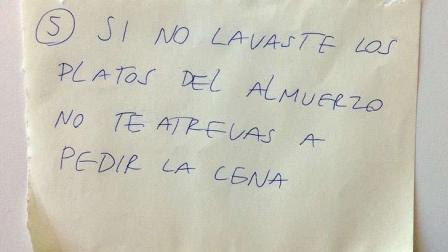 5 SI NO LAVASTE LOS
PLATOS DEL ALMUERZO
NO TE ATREVAS A
PEDIR LA CENA